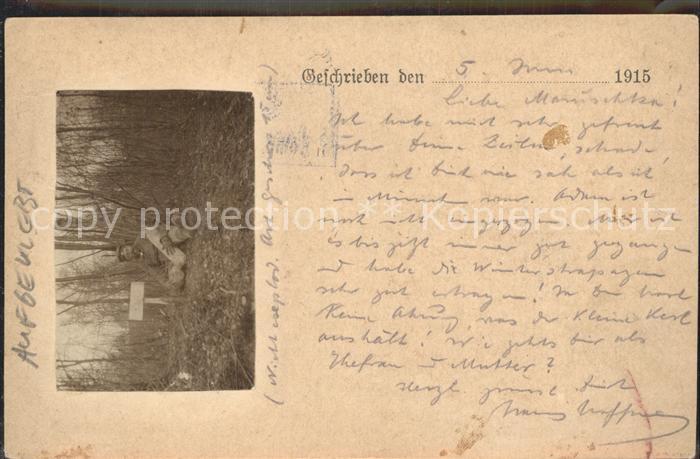 Geschrieben den 5. Juni 1915
Liebe Maruschka!
Ich habe mich sehr gefreut
über Deine Zeilen, schade,
dass ich Dich nie sah als ich
in München war. Adam ist
noch nicht. Mir ist
es bis jetzt immer gut gegangen
und habe die Winterstrapazen
sehr gut ertragen! Ja Du hast
keine Ahnung, was der kleine Kerl
aushält! Wie gehts Dir als
Ehefrau u Mutter?
Herzl. grüsst Dich
Hans
(Nicht explod. Art. geschoss 15 cm)
AUFGEKLEBT
copy protection ** Kopierschutz